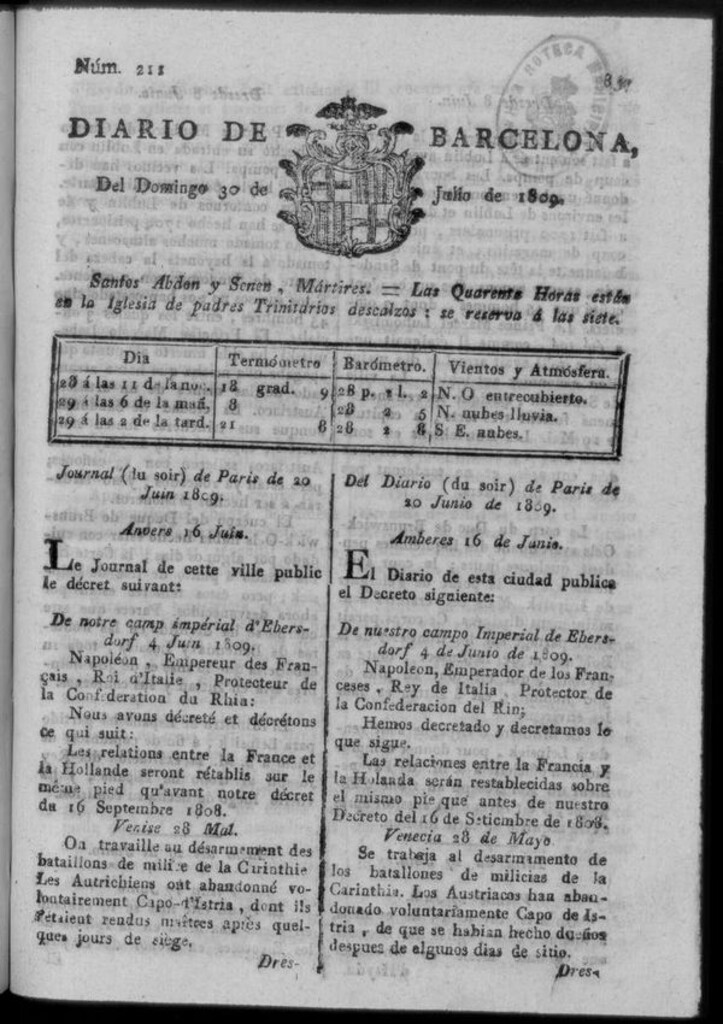 Núm. 211
DIARIO DE BARCELONA,
Del Domingo 30 de Julio de 1809.
Santos Abdon y Senen, Mártires. = Las Quarenta Horas están
en la Iglesia de padres Trinitarios descalzos: se reserva á las siete.
Dia Termómetro Barómetro. Vientos y Atmósfera.
28 á las 11 de la noc. 18 grad. 9 28 p. 2 l. 2 N. O entrecubierto.
29 á las 6 de la mañ. 8 28 2 5 N. nubes lluvia.
29 á las 2 de la tard. 21 8 28 2 8 S E. nubes.
Journal (du soir) de Paris de 20
Juin 1809.
Anvers 16 Juin.
Le Journal de cette ville public
le décret suivant:
De notre camp impérial d'Ebers-
dorf 4 Juin 1809.
Napoléon, Empereur des Fran-
çais, Roi d'Italie, Protecteur de
la Confederation du Rhin:
Nous avons décreté et décrétons
ce qui suit:
Les relations entre la France et
la Hollande seront rétablis sur le
même pied qu'avant notre décret
du 16 Septembre 1808.
Venise 28 Mai.
On travaille au désarmement des
bataillons de milice de la Carinthie
Les Autrichiens ont abandonné vo-
lontairement Capo-d'Istria, dont ils
s'étaient rendus maîtres après quel-
ques jours de siège.
Dres-
Del Diario (du soir) de Paris de
20 Junio de 1809.
Amberes 16 de Junio.
El Diario de esta ciudad publica
el Decreto siguiente:
De nuestro campo Imperial de Ebers-
dorf 4 de Junio de 1809.
Napoleon, Emperador de los Fran-
ceses, Rey de Italia, Protector de
la Confederacion del Rin;
Hemos decretado y decretamos lo
que sigue.
Las relaciones entre la Francia y
la Holanda serán restablecidas sobre
el mismo pie que antes de nuestro
Decreto del 16 de Setiembre de 1808.
Venecia 28 de Mayo.
Se trabaja al desarmamento de
los batallones de milicias de la
Carinthia. Los Austriacos han aban-
donado voluntariamente Capo de Is-
tria, de que se habian hecho dueños
despues de algunos dias de sitio.
Dres-